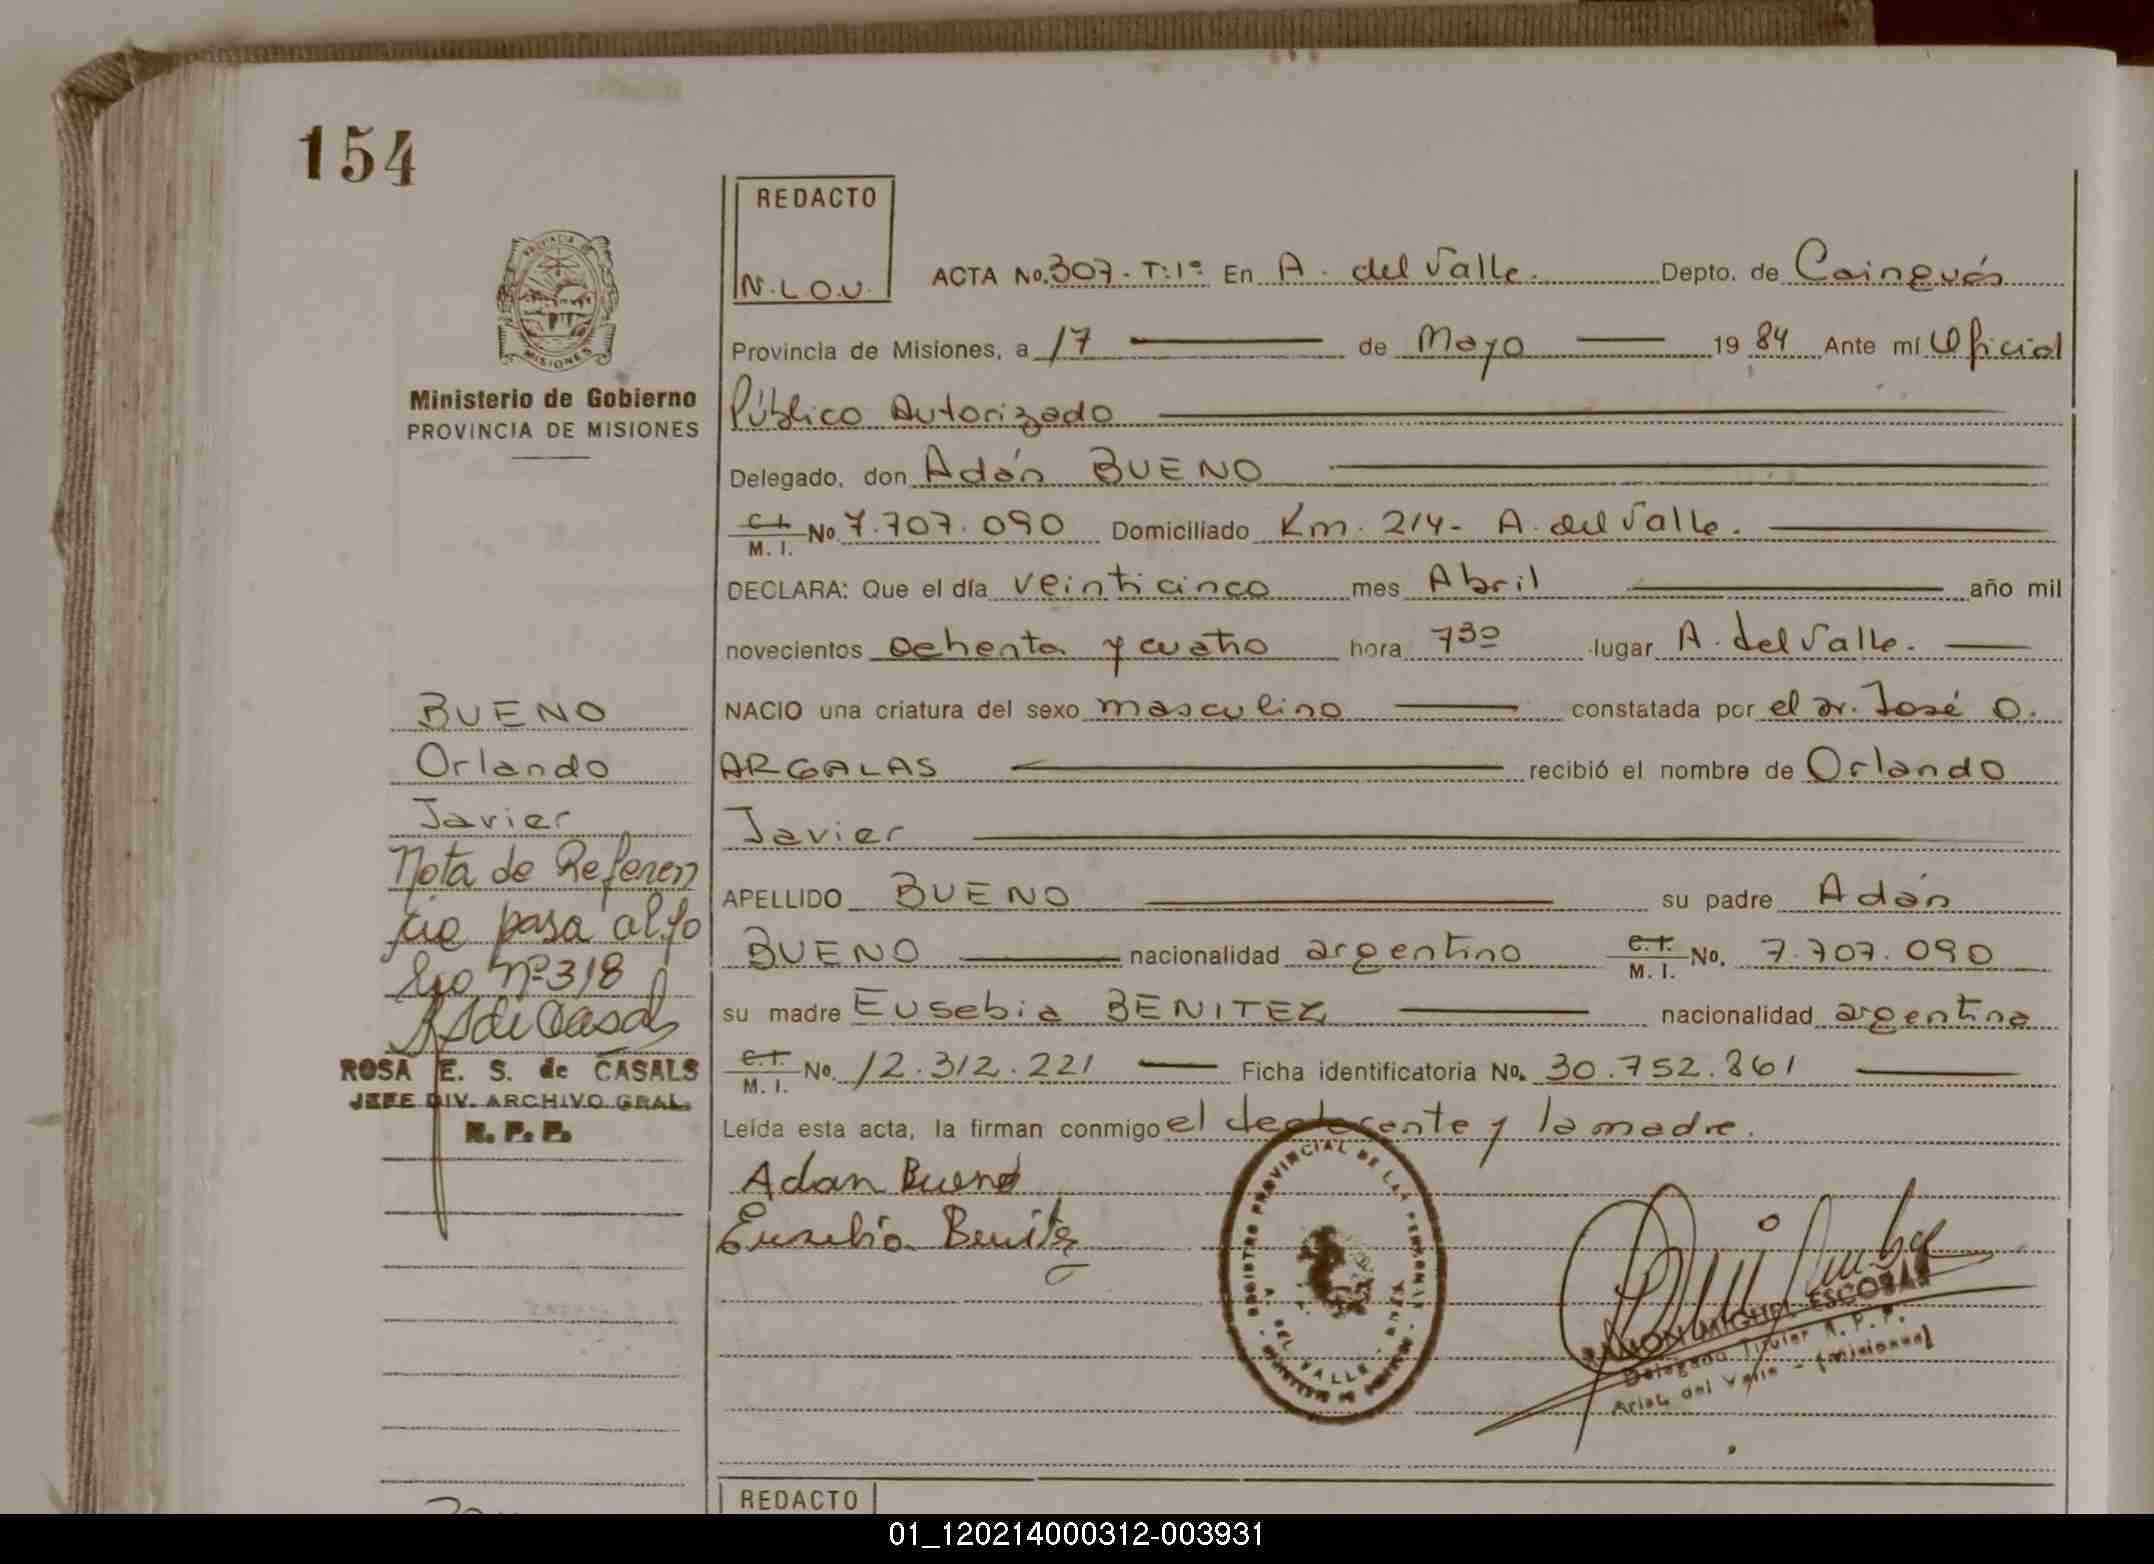 154
PROVINCIA DE
MISIONES
Ministerio de Gobierno
PROVINCIA DE MISIONES
REDACTO
N.L.O.U.
ACTA No. 307- T:1º En A. del Valle. Depto. de Cainguás
Provincia de Misiones, a 17 de Mayo 19 84 Ante mí Oficial
Público Autorizado
Delegado, don Adán BUENO
C.I. M. I. No 7.707.090 Domiciliado Km. 214- A. del Valle.
DECLARA: Que el día veinticinco mes Abril año mil
novecientos ochenta y cuatro hora 730 lugar A. del Valle.
NACIO una criatura del sexo masculino constatada por el Dr. José O.
ARGALAS recibió el nombre de Orlando
Javier
APELLIDO BUENO su padre Adán
BUENO nacionalidad argentino C.I. M. I. No. 7.707.090
su madre Eusebia BENITEZ nacionalidad argentina
C.I. M. I. No. 12.312.221 Ficha identificatoria No. 30.752.861
Leída esta acta, la firman conmigo el declarante y la madre.
Adan Bueno
Eusebia Benitez
BUENO
Orlando
Javier
Nota de Referen
cia pasa al fo
lio Nº 318
ROSA E. S. de CASALS
JEFE DIV. ARCHIVO GRAL.
R. P. P.
REGISTRO PROVINCIAL DE LAS PERSONAS
A. DEL VALLE
RAMON MIGUEL ESCOBAR
Delegado Titular R. P. P.
Arist. del Valle - (Misiones)
REDACTO
01_120214000312-003931